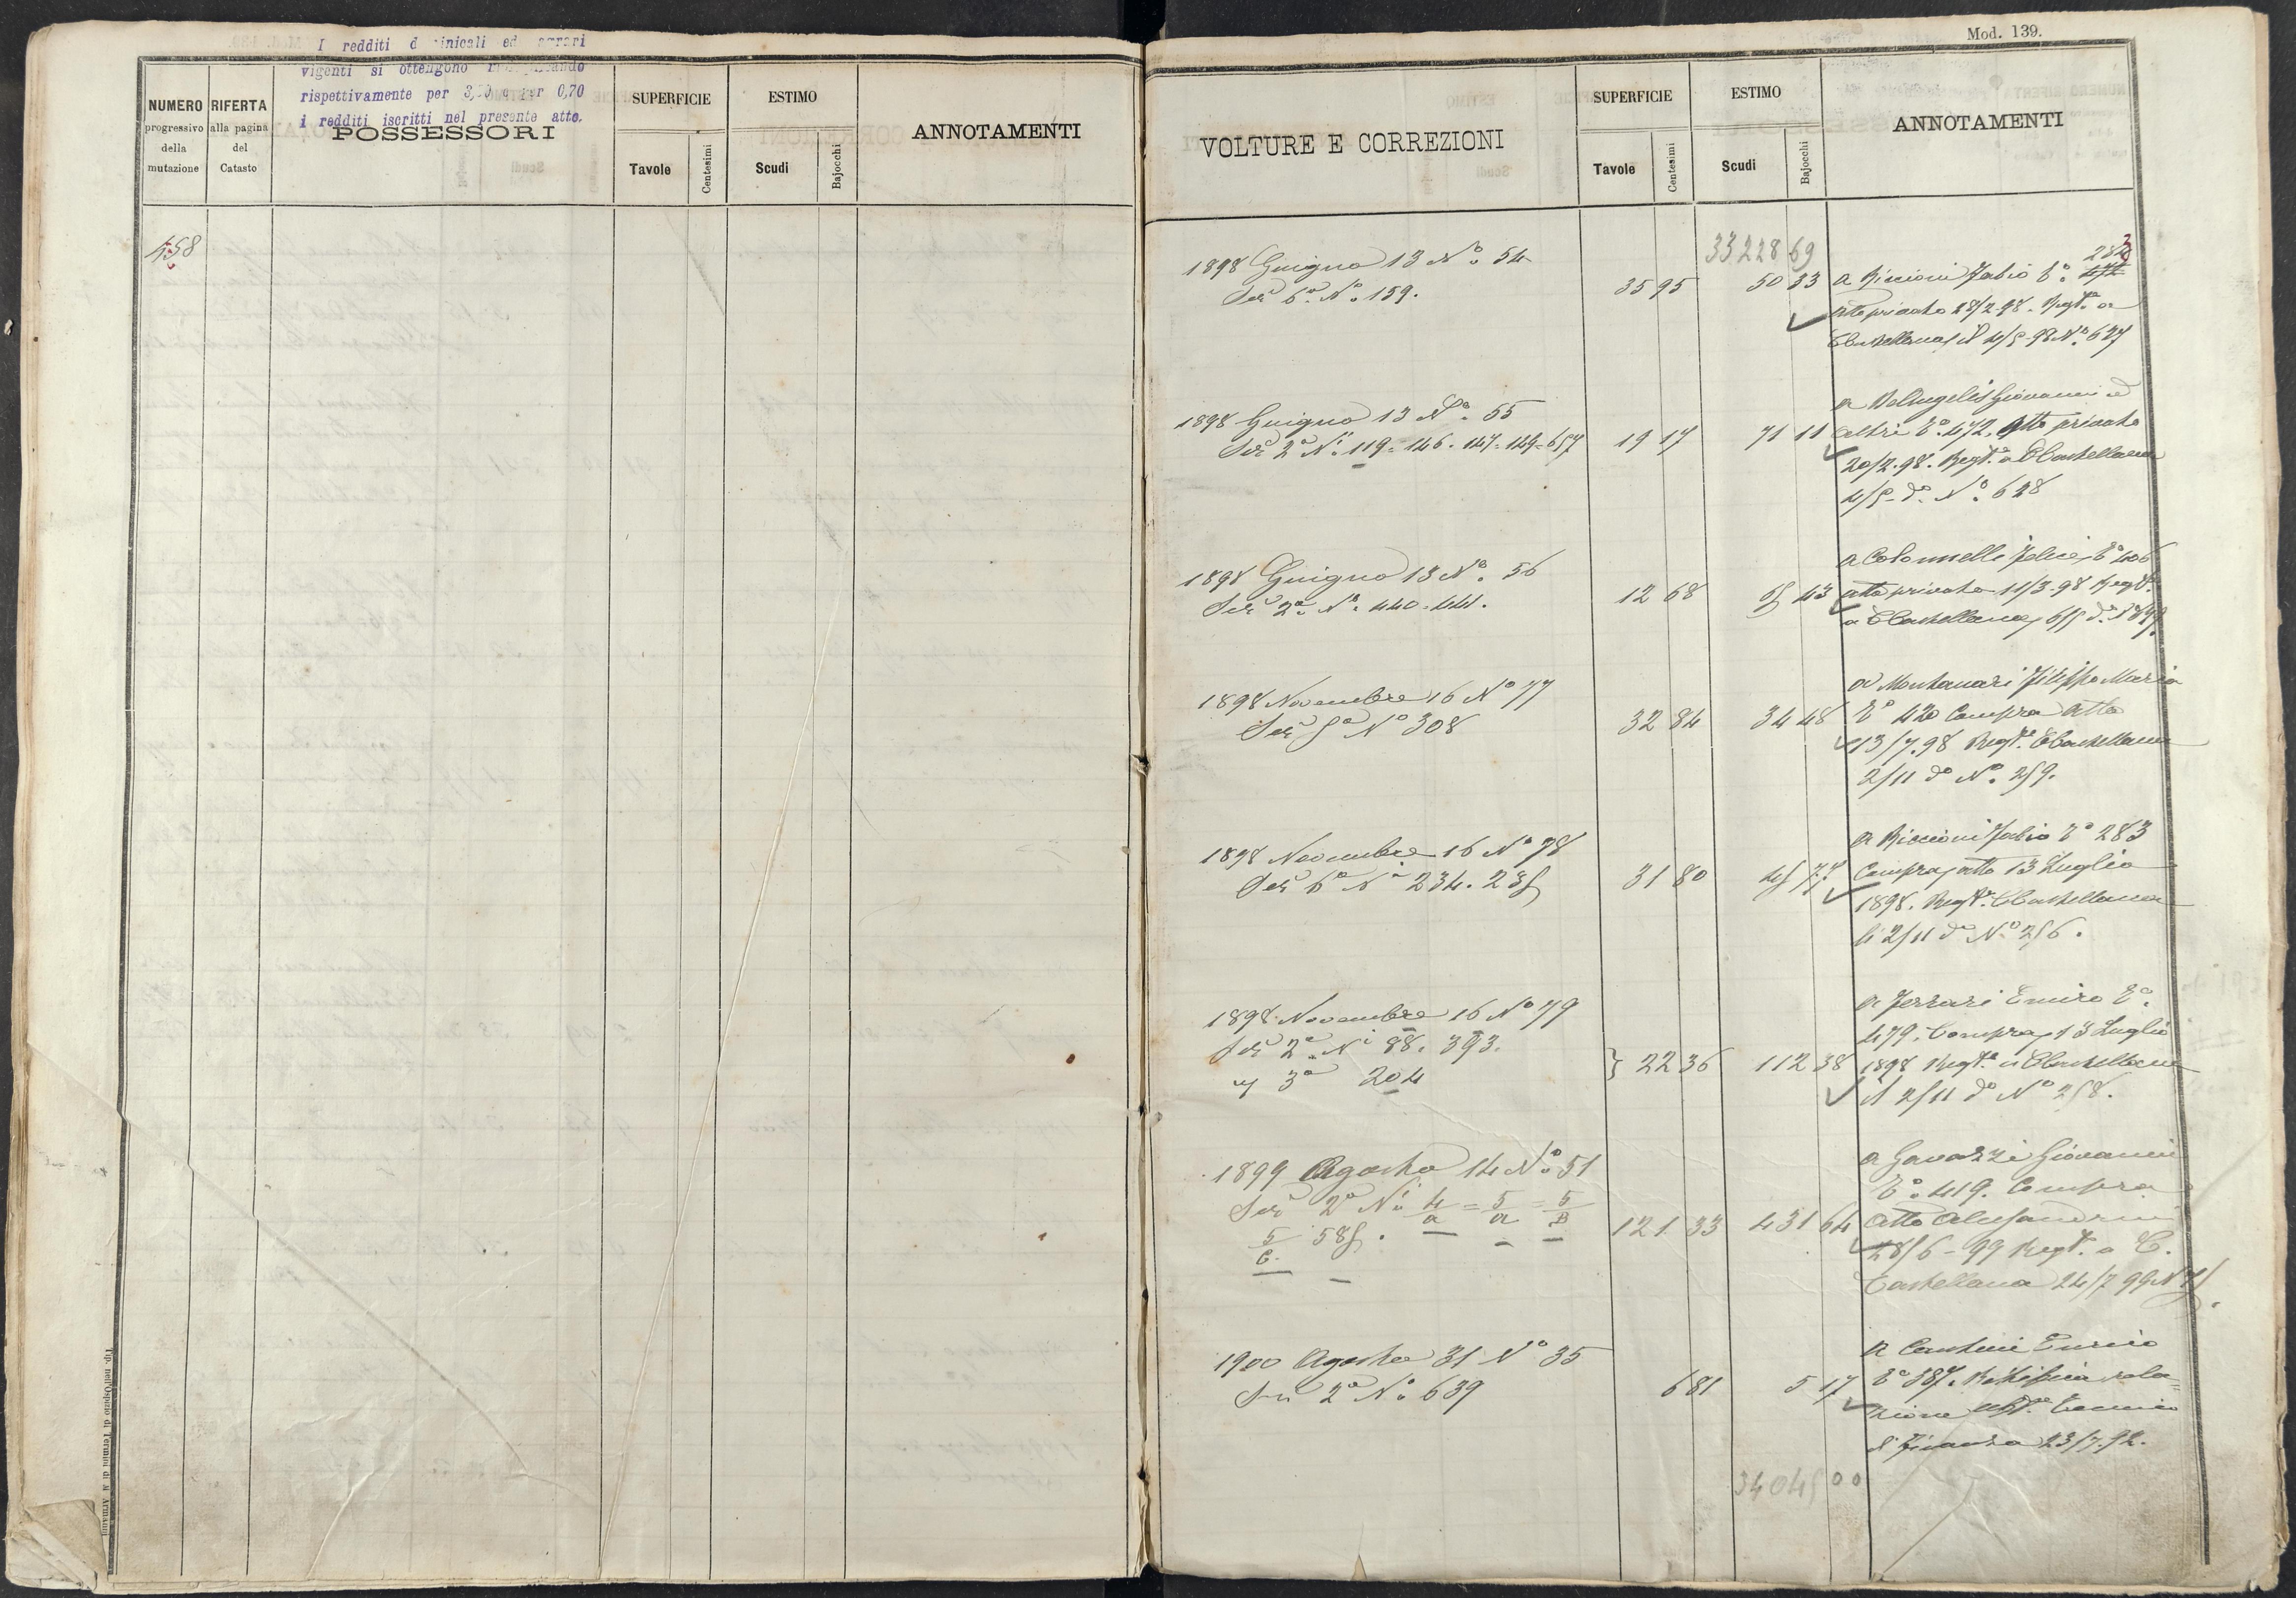 I redditi d inicali ed agrari
vigenti si ottengono
rispettivamente per 3, e per 0,70
i redditi iscritti nel presente atto.
NUMERO progressivo della mutazione
RIFERTA alla pagina del Catasto
POSSESSORI
SUPERFICIE
Tavole
Centesimi
ESTIMO
Scudi
Bajocchi
ANNOTAMENTI
458
Tip. nell'Ospizio di Termini di N. Armanni
Mod. 139.
VOLTURE E CORREZIONI
SUPERFICIE
Tavole
Centesimi
ESTIMO
Scudi
Bajocchi
ANNOTAMENTI
33228 69
283
1898 Giugno 13 N° 54
Sez 6ª N° 159.
35 95
50 33
a Riccioni Fabio T°
atto privato 28/2 98. Regt° a
CCastellana, li 4/5 98 N° 627
1898 Giugno 13 N° 55
Sez 2ª Ni 119= 146. 147= 149= 657
19 17
71 11
a DeAngelis Giovanni ed
altri T° 472. Atto privato
20/2.98. Regt° a CCastellana
4/5 d° N° 628
1898 Giugno 13 N° 56
Sez 2ª Ni 440=441.
12 68
5 43
a Colonnelli Felice T° 406
atto privato 11/3-98 Regt°
a CCastellana, 6/5 d°
1898 Novembre 16 N° 77
Sez 5ª N° 308
32 84
34 48
a Montanari Filippo Maria
T° 420 Compra Atto
13/7.98 Regt° CCastellana
2/11 d° N° 259.
1898 Novembre 16 N° 78
Sez 6ª Ni 234. 235
31 80
45 77
a Riccioni Fabio T° 283
Compra, atto 13 Luglio
1898. Regt° CCastellana
li 2/11 d° N° 256.
1898 Novembre 16 N° 79
Sez 2ª Ni 88. 393.
" 3ª 204
} 22 36
112 38
a Ferrari Emiro T°
479. Compra, 13 Luglio
1898 Regt° a CCastellana
li 2/11 d° N° 258.
1899 Agosto 14 N° 51
Sez 2ª Ni 4/a = 5/a = 5/B
5/C. 585.
121 33
431 64
a Gavazzi Giovanni
T° 419. Compra
Atto Alessandrini
28/6-99 Regt° a C.
Castellana 24/7 99 N° 75.
1900 Agosto 31 N° 35
Sez 2ª N° 639
6 81
5 17
a Cantini Enrico
T° 387. Rettifica rela=
zione
di Finanza 23/7.92.
34045 00